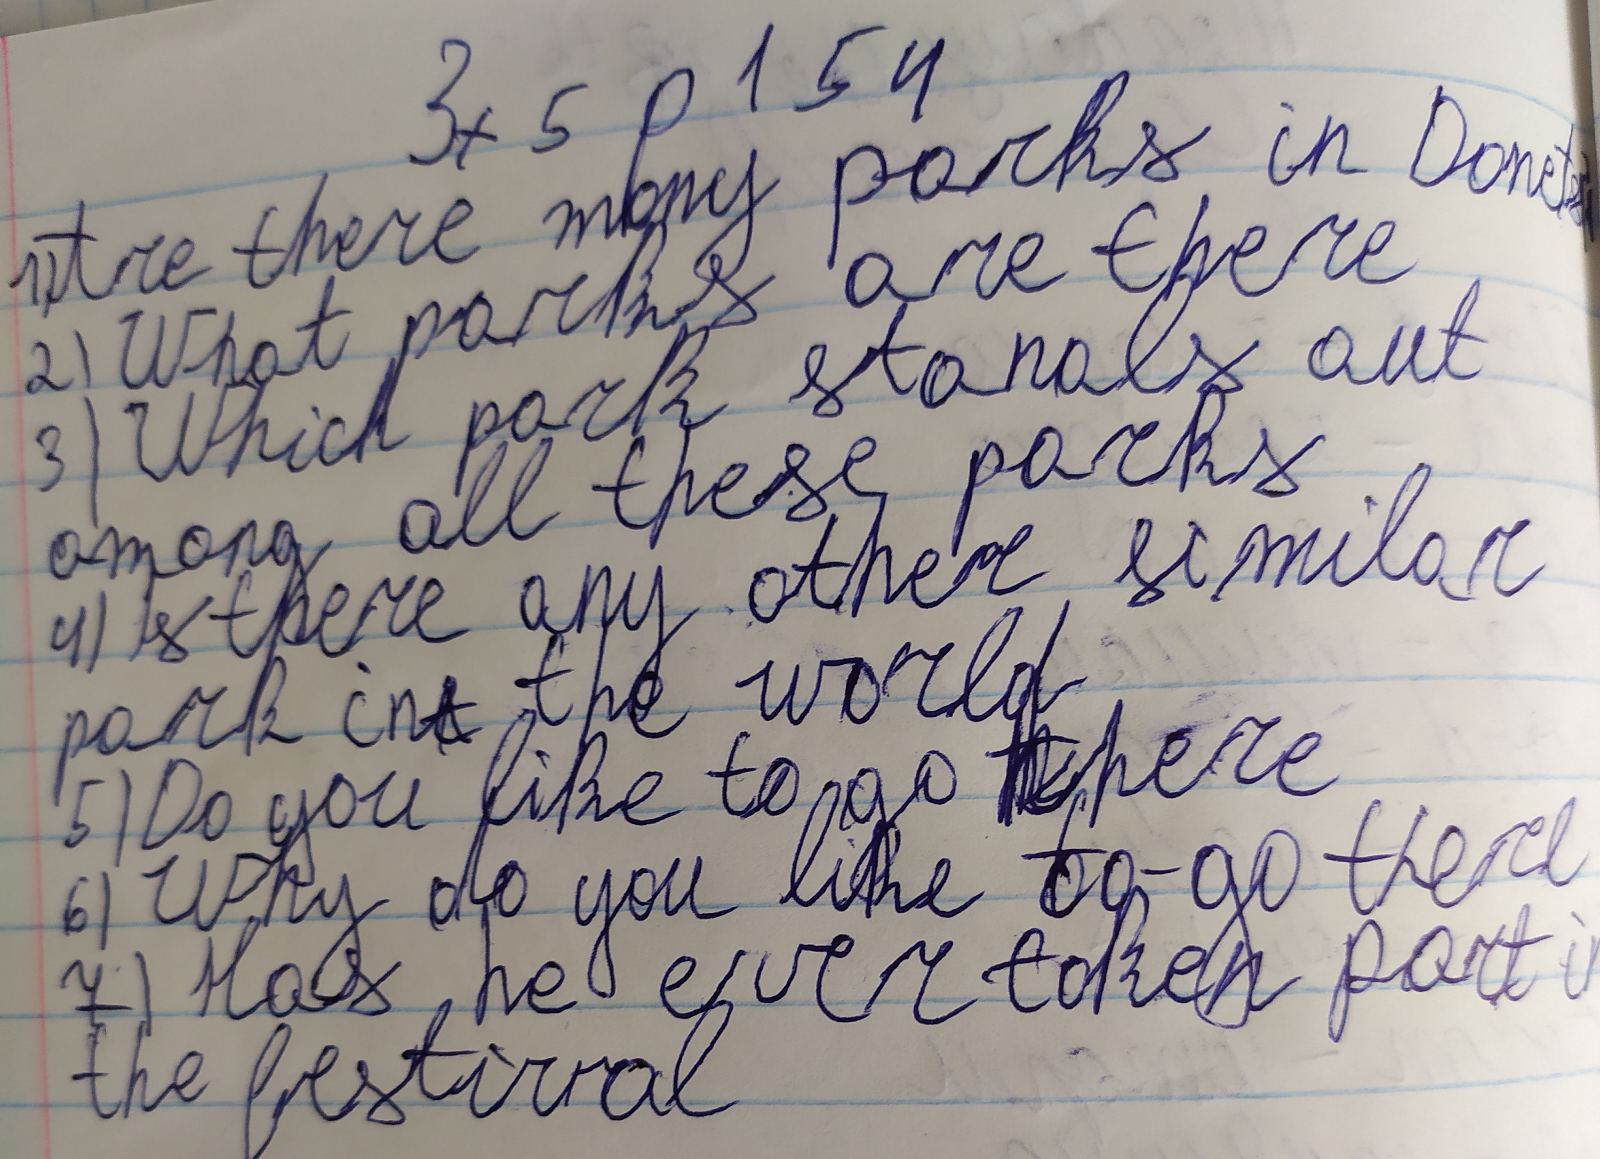 Ex 5 p 154
1) Are there many parks in Donetsk
2) What parks are there
3) Which park stands out
among all these parks
4) Is there any other similar
park in the world
5) Do you like to go there
6) Why do you like to-go there
7) Has he ever taken part in
the festival